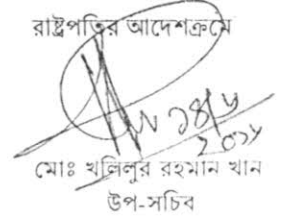 রাষ্ট্রপতির আদেশক্রমে
মোঃ খলিলুর রহমান খান
উপ-সচিব